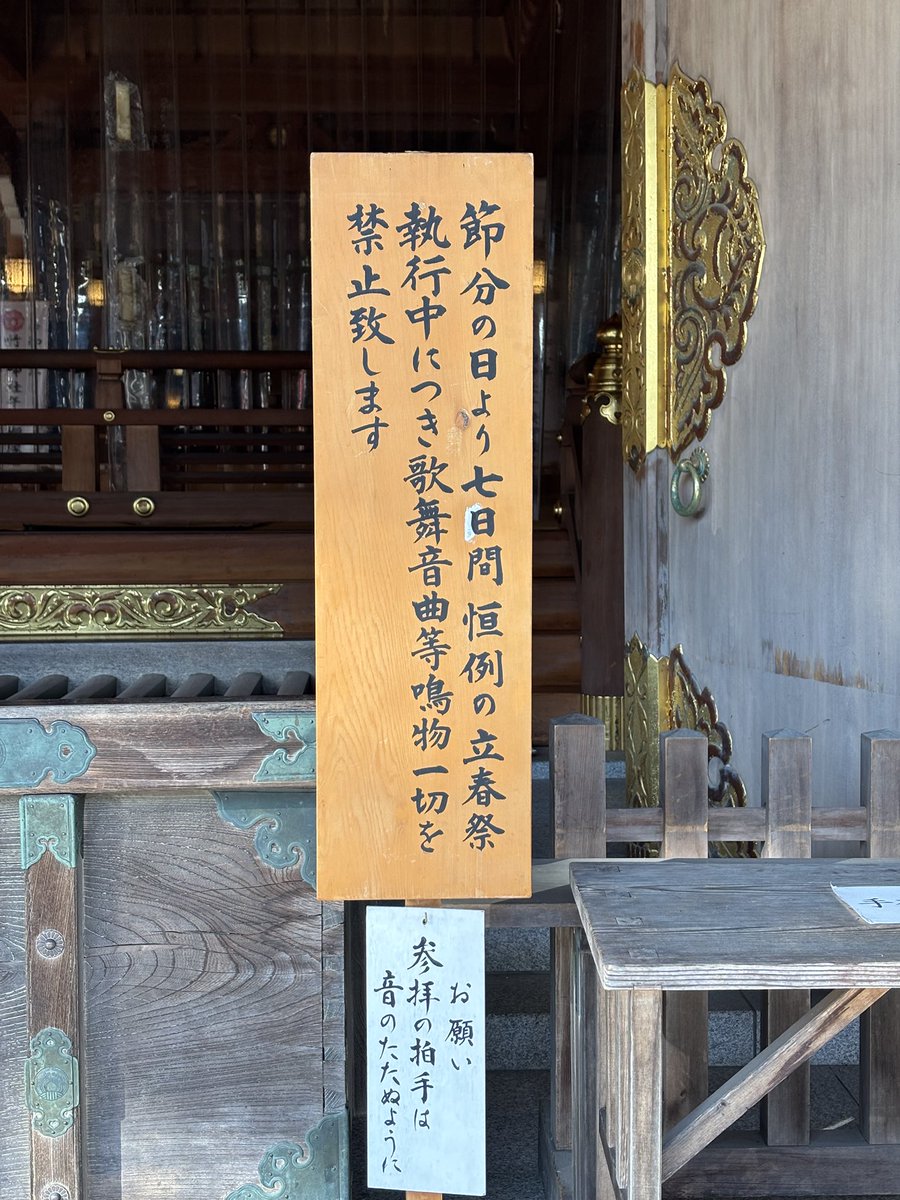 節分の日より七日間恒例の立春祭
執行中につき歌舞音曲等鳴物一切を
禁止致します
お願い
参拝の拍手は
音のたたぬように